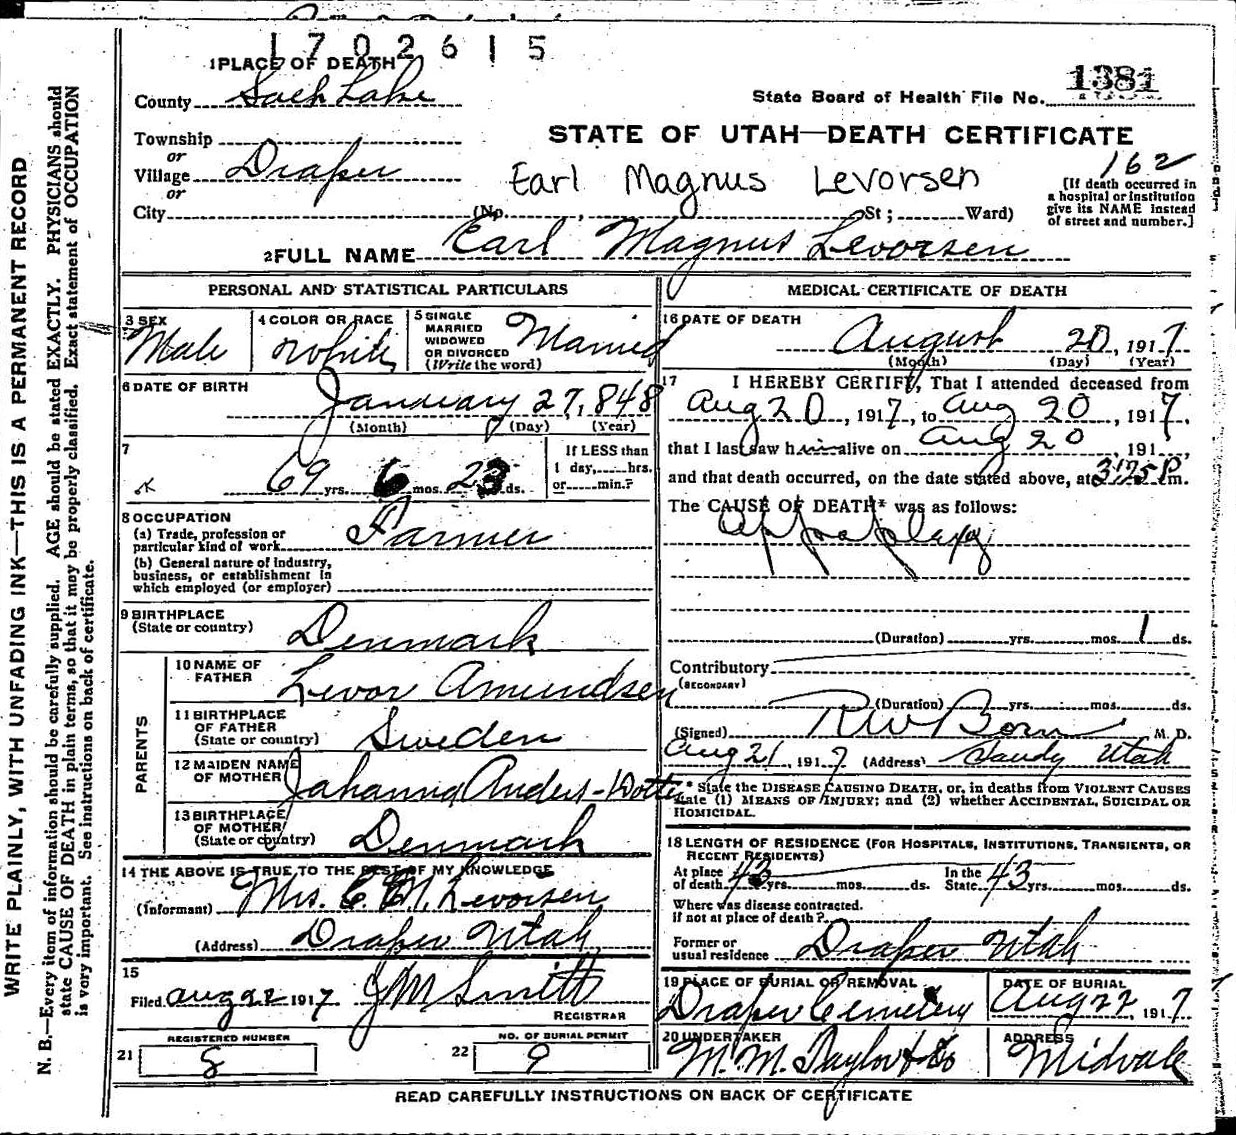 1702615
1 PLACE OF DEATH
County Salt Lake
1381
State Board of Health File No.
STATE OF UTAH—DEATH CERTIFICATE
Township
or
Village Draper
or
City
Earl Magnus Levorsen
162
[If death occurred in
a hospital or institution
give its NAME instead
of street and number.]
(No. , St; Ward)
2 FULL NAME Earl Magnus Levorsen
PERSONAL AND STATISTICAL PARTICULARS
3 SEX
Male
4 COLOR OR RACE
White
5 SINGLE
MARRIED
WIDOWED
OR DIVORCED
(Write the word)
Married
6 DATE OF BIRTH
January 27, 848
(Month) (Day) (Year)
7
69 yrs. 6 mos. 23 ds.
If LESS than
1 day, hrs.
or min.?
8 OCCUPATION
(a) Trade, profession or
particular kind of work Farmer
(b) General nature of industry,
business, or establishment in
which employed (or employer)
9 BIRTHPLACE
(State or country) Denmark
PARENTS
10 NAME OF
FATHER Levor Amundsen
11 BIRTHPLACE
OF FATHER
(State or country) Sweden
12 MAIDEN NAME
OF MOTHER Johanna Anders-Dotter
13 BIRTHPLACE
OF MOTHER
(State or country) Denmark
14 THE ABOVE IS TRUE TO THE BEST OF MY KNOWLEDGE
(Informant) Mrs. E. M. Levorsen
(Address) Draper Utah
15
Filed Aug 22 1917 J M Smith
REGISTRAR
REGISTERED NUMBER
21 8
NO. OF BURIAL PERMIT
22 9
MEDICAL CERTIFICATE OF DEATH
16 DATE OF DEATH
August 20, 1917
(Month) (Day) (Year)
17 I HEREBY CERTIFY, That I attended deceased from
Aug 20, 1917, to Aug 20, 1917
that I last saw him alive on Aug 20 191 ,
and that death occurred, on the date stated above, at P m.
The CAUSE OF DEATH* was as follows:
Appoplexy
(Duration) yrs. mos. 1 ds.
Contributory
(SECONDARY)
(Duration) yrs. mos. ds.
(Signed) R W Born M. D.
Aug 21, 1917 (Address) Sandy Utah
* State the DISEASE CAUSING DEATH, or, in deaths from VIOLENT CAUSES
state (1) MEANS OF INJURY; and (2) whether ACCIDENTAL, SUICIDAL OR
HOMICIDAL.
18 LENGTH OF RESIDENCE (FOR HOSPITALS, INSTITUTIONS, TRANSIENTS, OR
RECENT RESIDENTS)
At place
of death 43 yrs. mos. ds.
In the
State 43 yrs. mos. ds.
Where was disease contracted.
if not at place of death?
Former or
usual residence Draper Utah
19 PLACE OF BURIAL OR REMOVAL
Draper Cemetery
DATE OF BURIAL
Aug 22, 1917
20 UNDERTAKER
M. M. Taylor & Co
ADDRESS
Midvale
READ CAREFULLY INSTRUCTIONS ON BACK OF CERTIFICATE
WRITE PLAINLY, WITH UNFADING INK—THIS IS A PERMANENT RECORD
N. B.—Every item of information should be carefully supplied. AGE should be stated EXACTLY. PHYSICIANS should
state CAUSE OF DEATH in plain terms, so that it may be properly classified. Exact statement of OCCUPATION
is very important. See instructions on back of certificate.